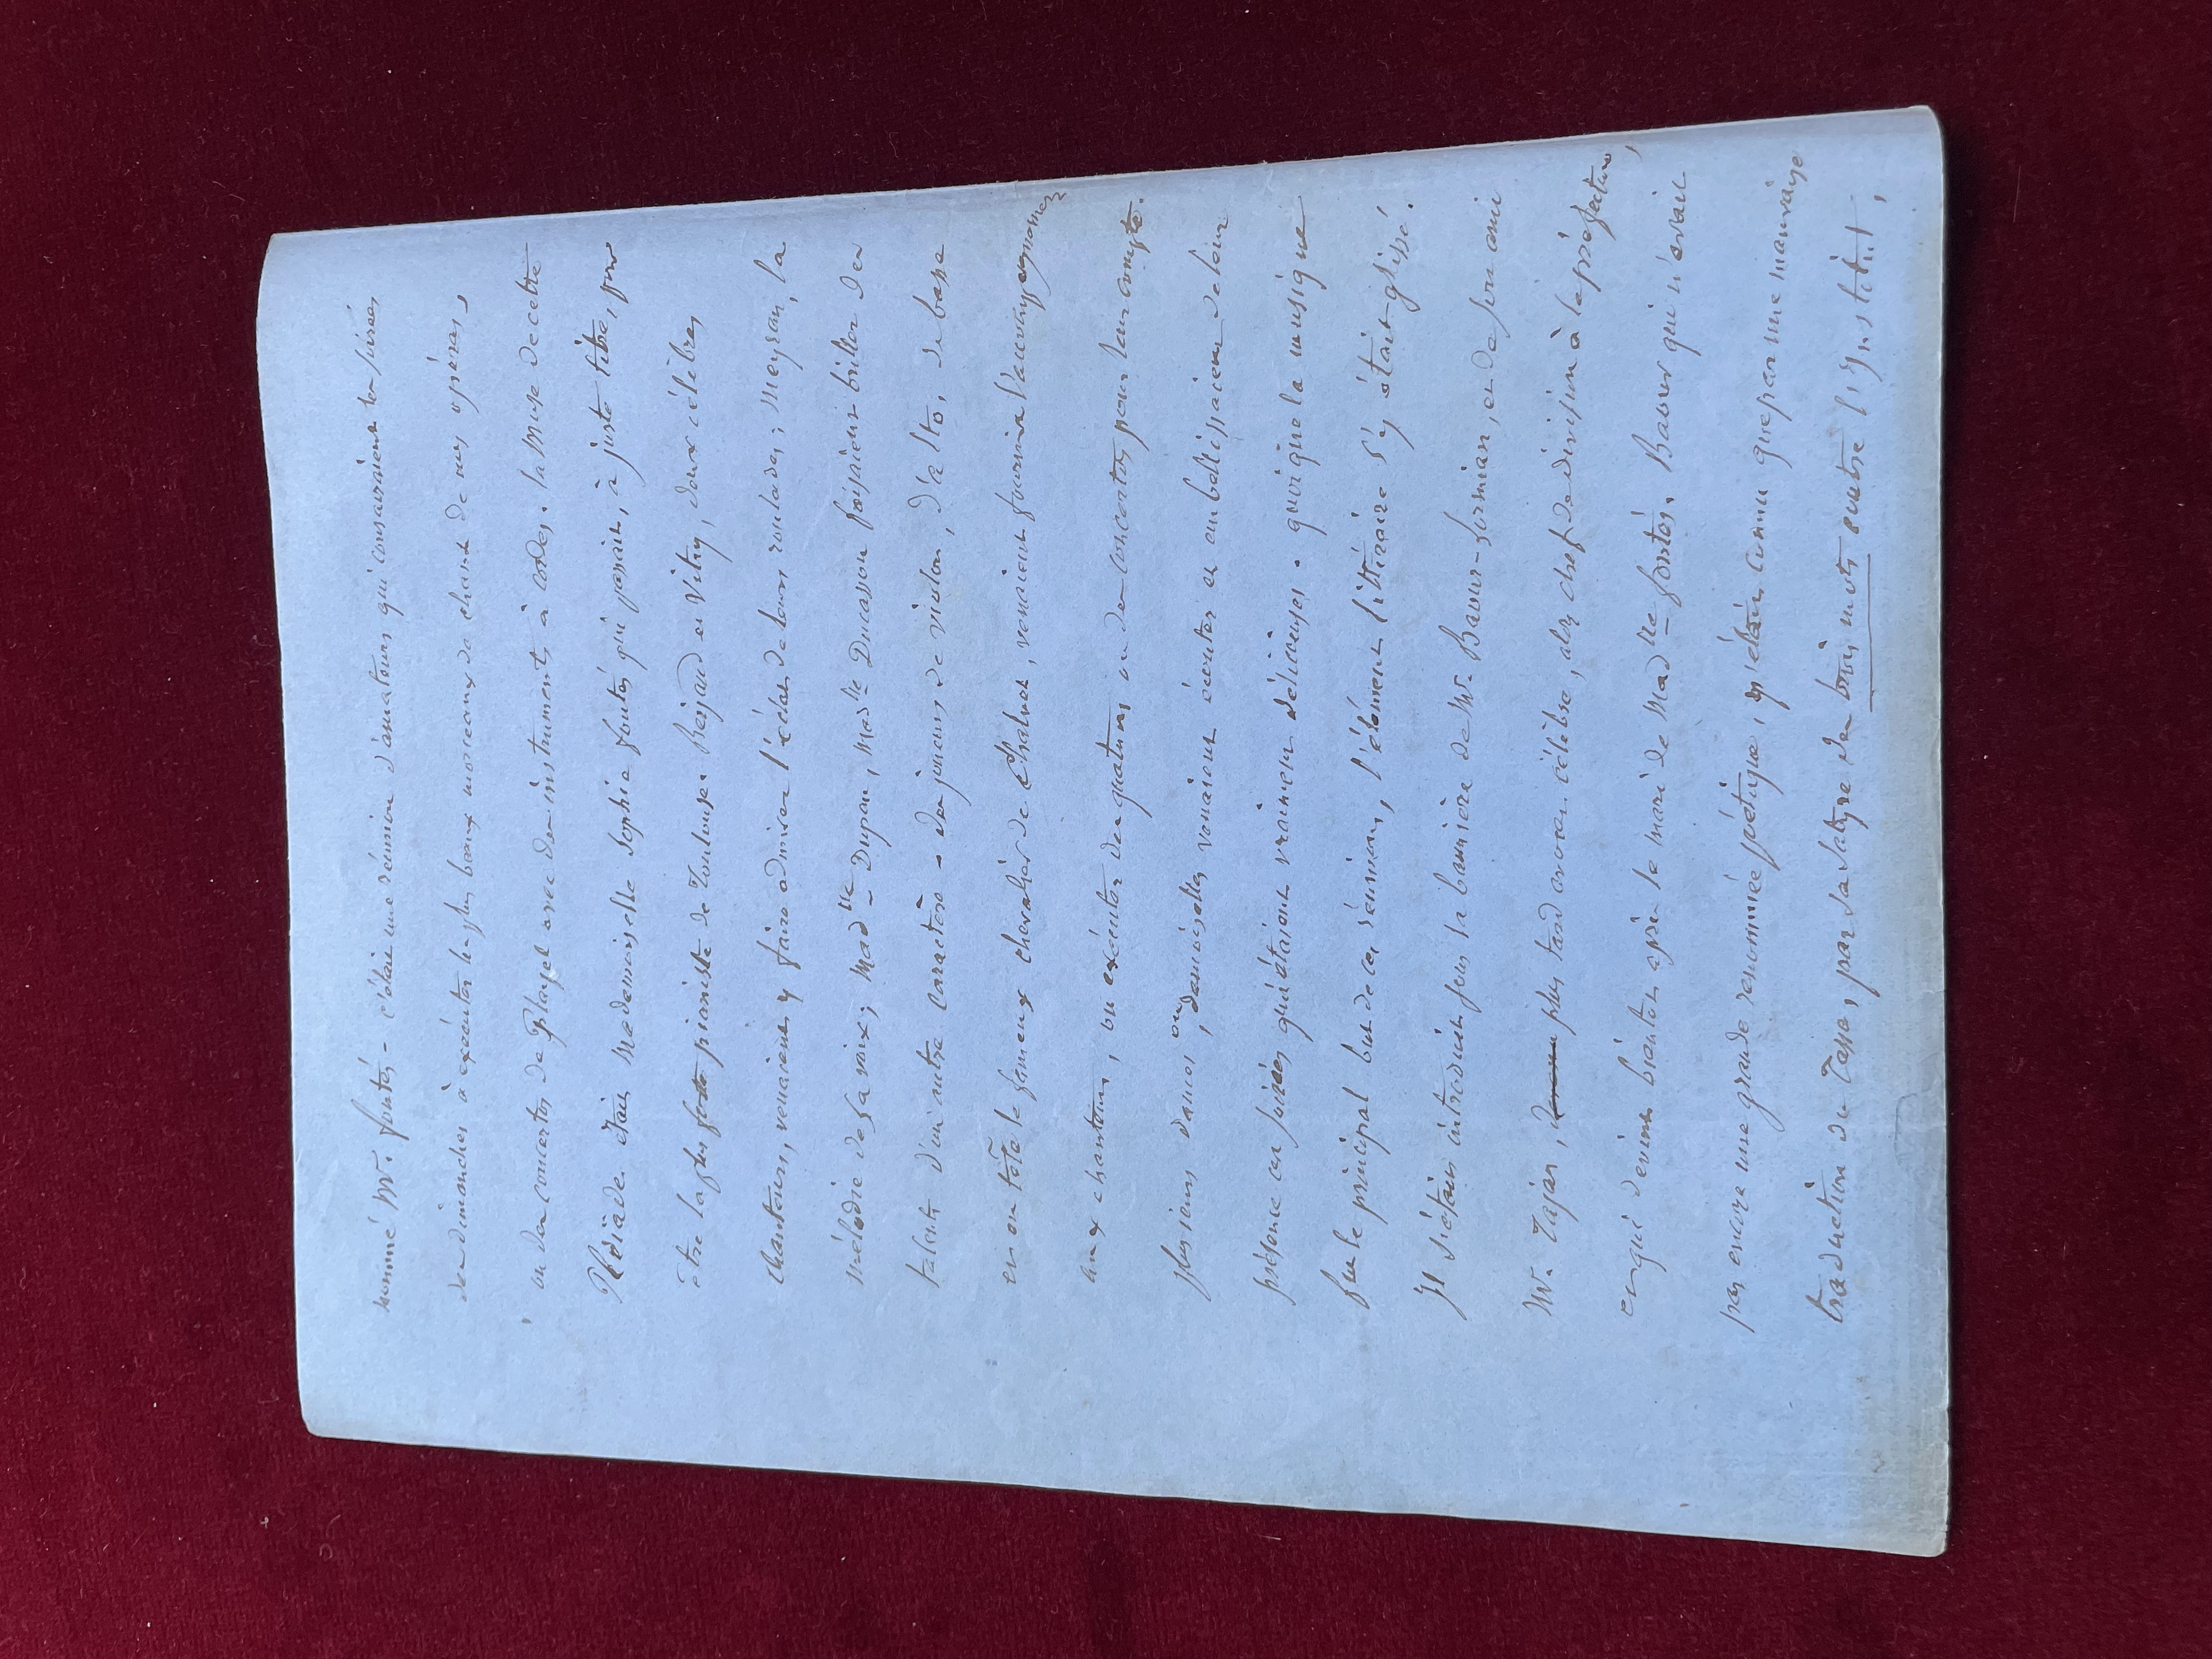 nommé Mr. fontés - c'était une réunion d'amateurs qui consacraient les soirées
des dimanches à exécuter les plus beaux morceaux de chant de nos opéras,
ou des concertos de Playel avec des instruments à cordes. la Muse de cette
Pléïade était Mademoiselle Sophie fontés qui passait, à juste titre, pour
être la plus forte pianiste de Toulouse. Rejaud et Vitry, deux célèbres
chanteurs, venaient y faire admirer l'éclat de leurs roulades; Meyran, la
mélodie de sa voix; Mad.lle Dupan, Mad.lle Ducasson faisaient briller des
talents d'un autre caractère - des joueurs de violon, d'alto, de basse
en on tête le fameux chevalier de Chalvet, venaient fournir l'accompagnement
aux chanteurs, ou exécuter des quatuors ou des concertos pour leur compte.
plusieurs dames, ou demoiselles venaient écouter et embellissaient de leur
présence ces soirées qui étaient vraiment délicieuses. quoique la musique
fut le principal but de ces réunions, l'élément littéraire s'y était glissé.
Il s'était introduit sous la bannière de Mr. Baour-Lormian, et de son ami
Mr. Tajan, plus tard avocat célèbre, alors chef de division à la préfecture,
et qui devint bientôt après le mari de Mad.lle fontés. Baour qui n'avait
pas encore une grande renommée poétique, n'était connu que par une mauvaise
traduction du Tasse, par sa satyre des trois mots contre l'Institut,